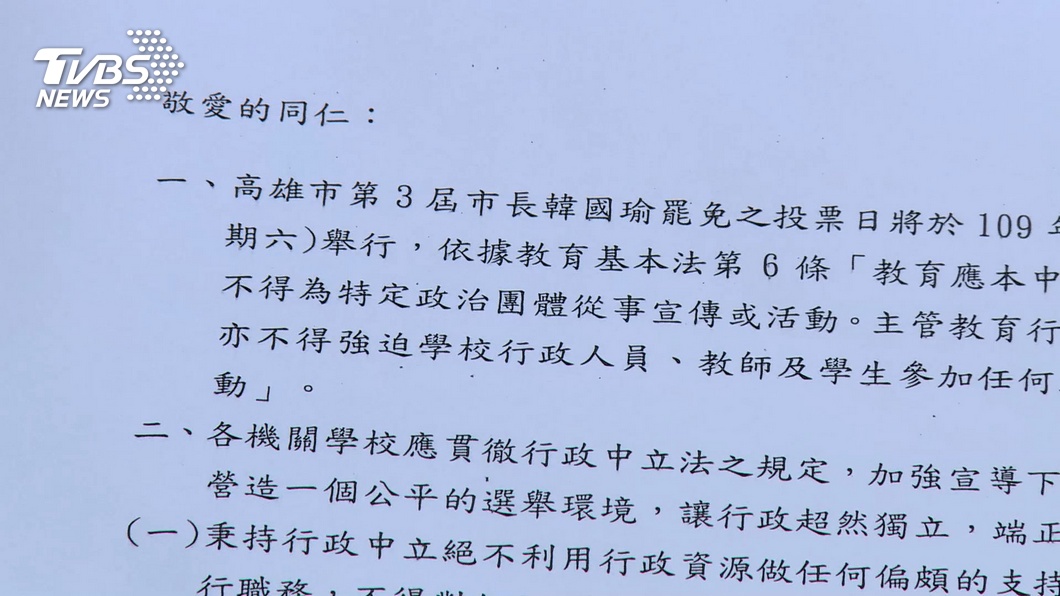 TVBS
NEWS
敬愛的同仁：
一、高雄市第3屆市長韓國瑜罷免之投票日將於109年
期六)舉行，依據教育基本法第6條「教育應本中
不得為特定政治團體從事宣傳或活動。主管教育行
亦不得強迫學校行政人員、教師及學生參加任何
動」。
二、各機關學校應貫徹行政中立法之規定，加強宣導下
營造一個公平的選舉環境，讓行政超然獨立，端正
(一)秉持行政中立絕不利用行政資源做任何偏頗的支持
行職務，不得對